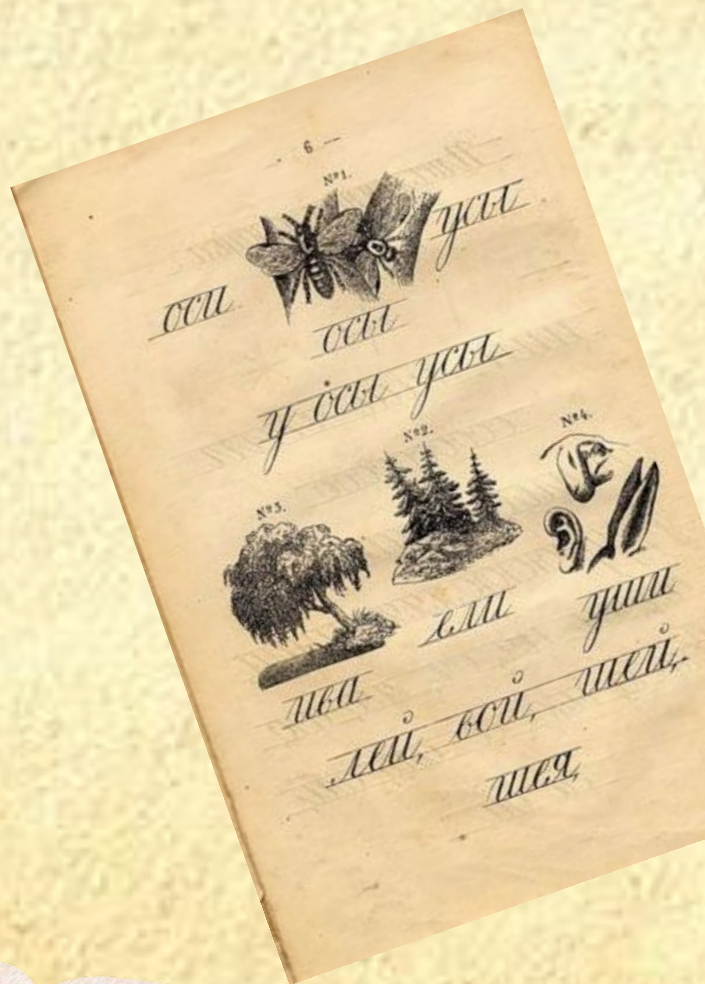 - 6 —
№1.
усы
оси
осы
у осы усы
№2.
№4.
№3.
ели
уши
ива
лей, вой, шей,
шея,